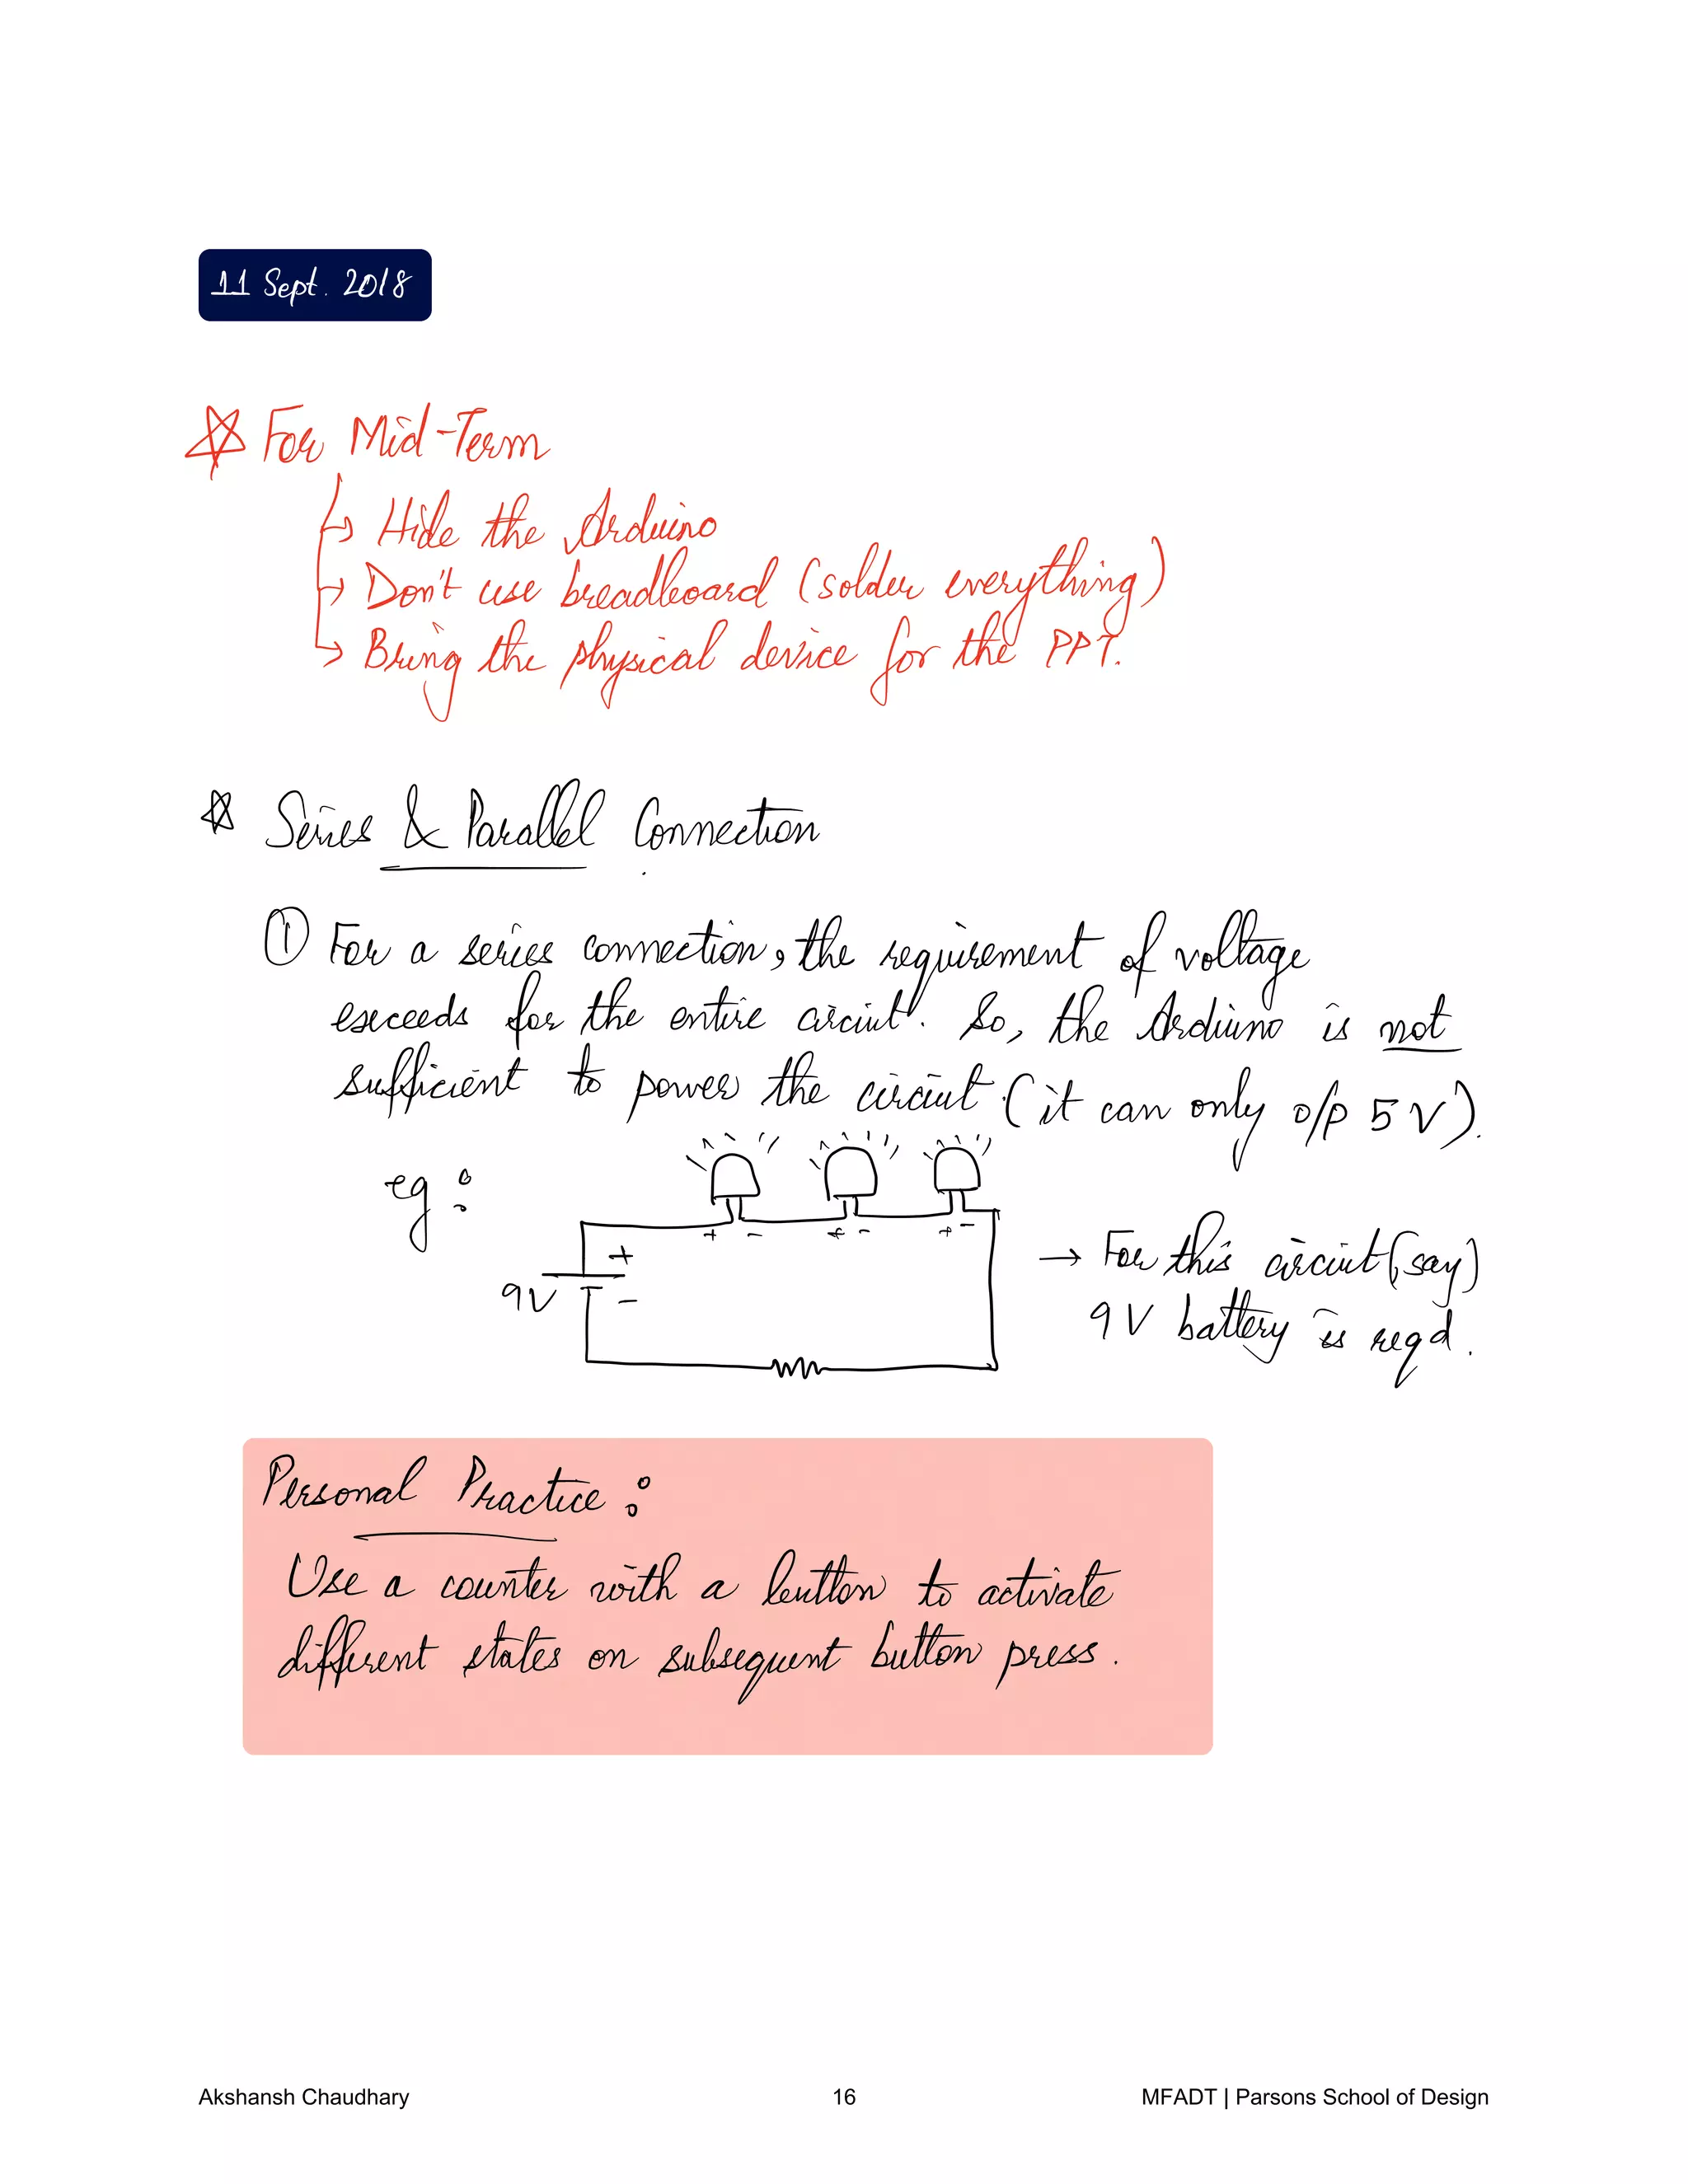 11 Sept. 2018
For Mid-Term
Hide the Arduino
Don't use breadboard (solder everything)
Bring the physical device for the PPT.
Series & Parallel Connection
① For a series connection, the requirement of voltage
exceeds for the entire circuit. So, the Arduino is not
sufficient to power the circuit (it can only o/p 5V).
eg:
+ - + - + -
+
9V -
→ For this circuit (say)
9V battery is reqd.
Personal Practice:
Use a counter with a button to activate
different states on subsequent button press.
Akshansh Chaudhary 16 MFADT | Parsons School of Design